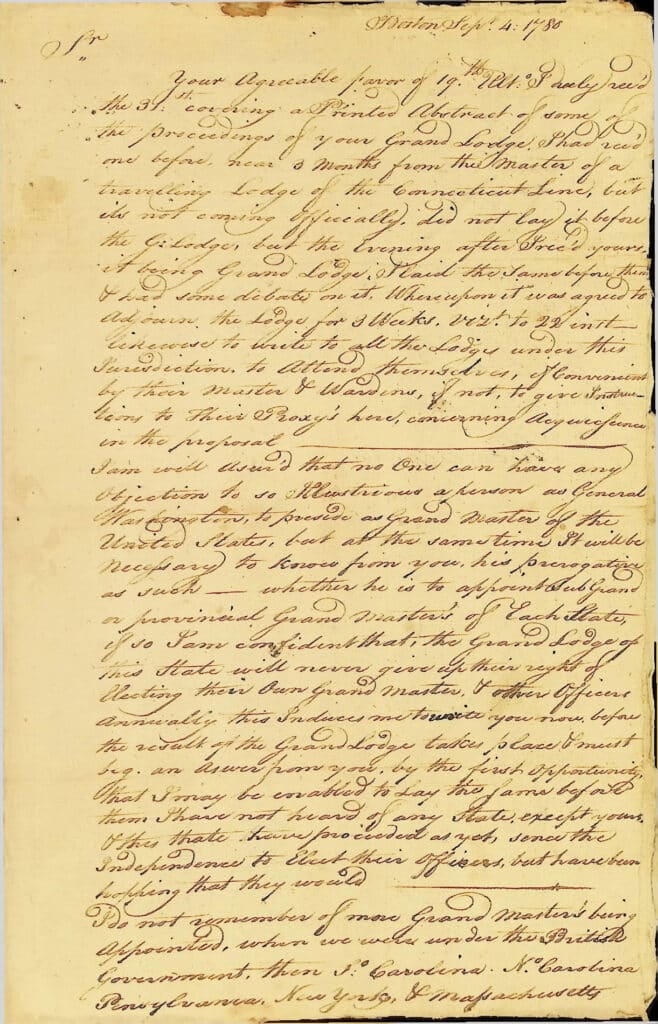 Boston Sepr. 4: 1780
Sr
Your Agreeable favor of 19th. Ulto. I duely rec'd
the 31st. covering a Printed Abstract of some of
the proceedings of your Grand Lodge, I had rec'd
one before, near 3 Months from the Master of a
travelling Lodge of the Connecticut Line, but
its not coming Officcally, did not lay it before
the G: Lodge, but the Evening after I rec'd yours,
it being Grand Lodge, I laid the same before them
& had some debate on it. Whereupon it was agreed to
Adjourn the Lodge for 3 Weeks. Vizt. to 22 inst—
likewise to write to all the Lodges under this
Jurisdiction, to Attend themselves, if Convenient
by their Master & Wardens, if not, to give Instruc-
tions to Their Proxy's here, concerning Acquiescence
in the proposal
I am will Asur'd that no One can have any
Objection to so Illustrious a person as General
Washington, to preside as Grand Master of the
United States, but at the same time It will be
necessary to know from you, his prerogative
as such — whether he is to appoint Sub Grand
or provincial Grand Master's of Each State,
if so I am confident that, the Grand Lodge of
this State will never give up their right of
Electing their Own Grand Master, & other Officers
Annually this Induces me to write you now, before
the result of the Grand Lodge takes place & must
beg. an Aswer from you, by the first Opportunity,
that I may be enabled to Lay the same before
them I have not heard of any State, except yours
& this thate have proceeded as yet, sence the
Independence to Elect their Officers, but have been
hopping that they would
I do not remember of more Grand Master's being
Appointed, when we were under the British
Government, then So. Carolina. No. Carolina
Pensylvania, New York, & Massachusetts